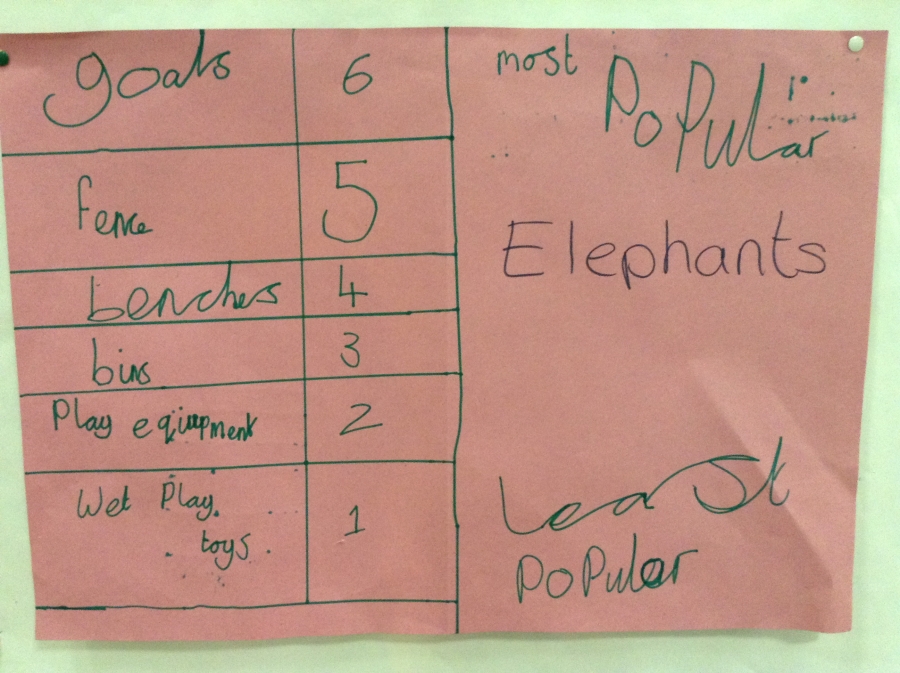 goals 6
fence 5
benches 4
bins 3
Play equipment 2
Wet Play
toys 1
most
PoPular
Elephants
Least
PoPular